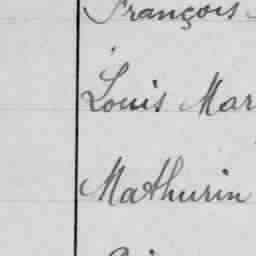 François
Louis Mar
Mathurin